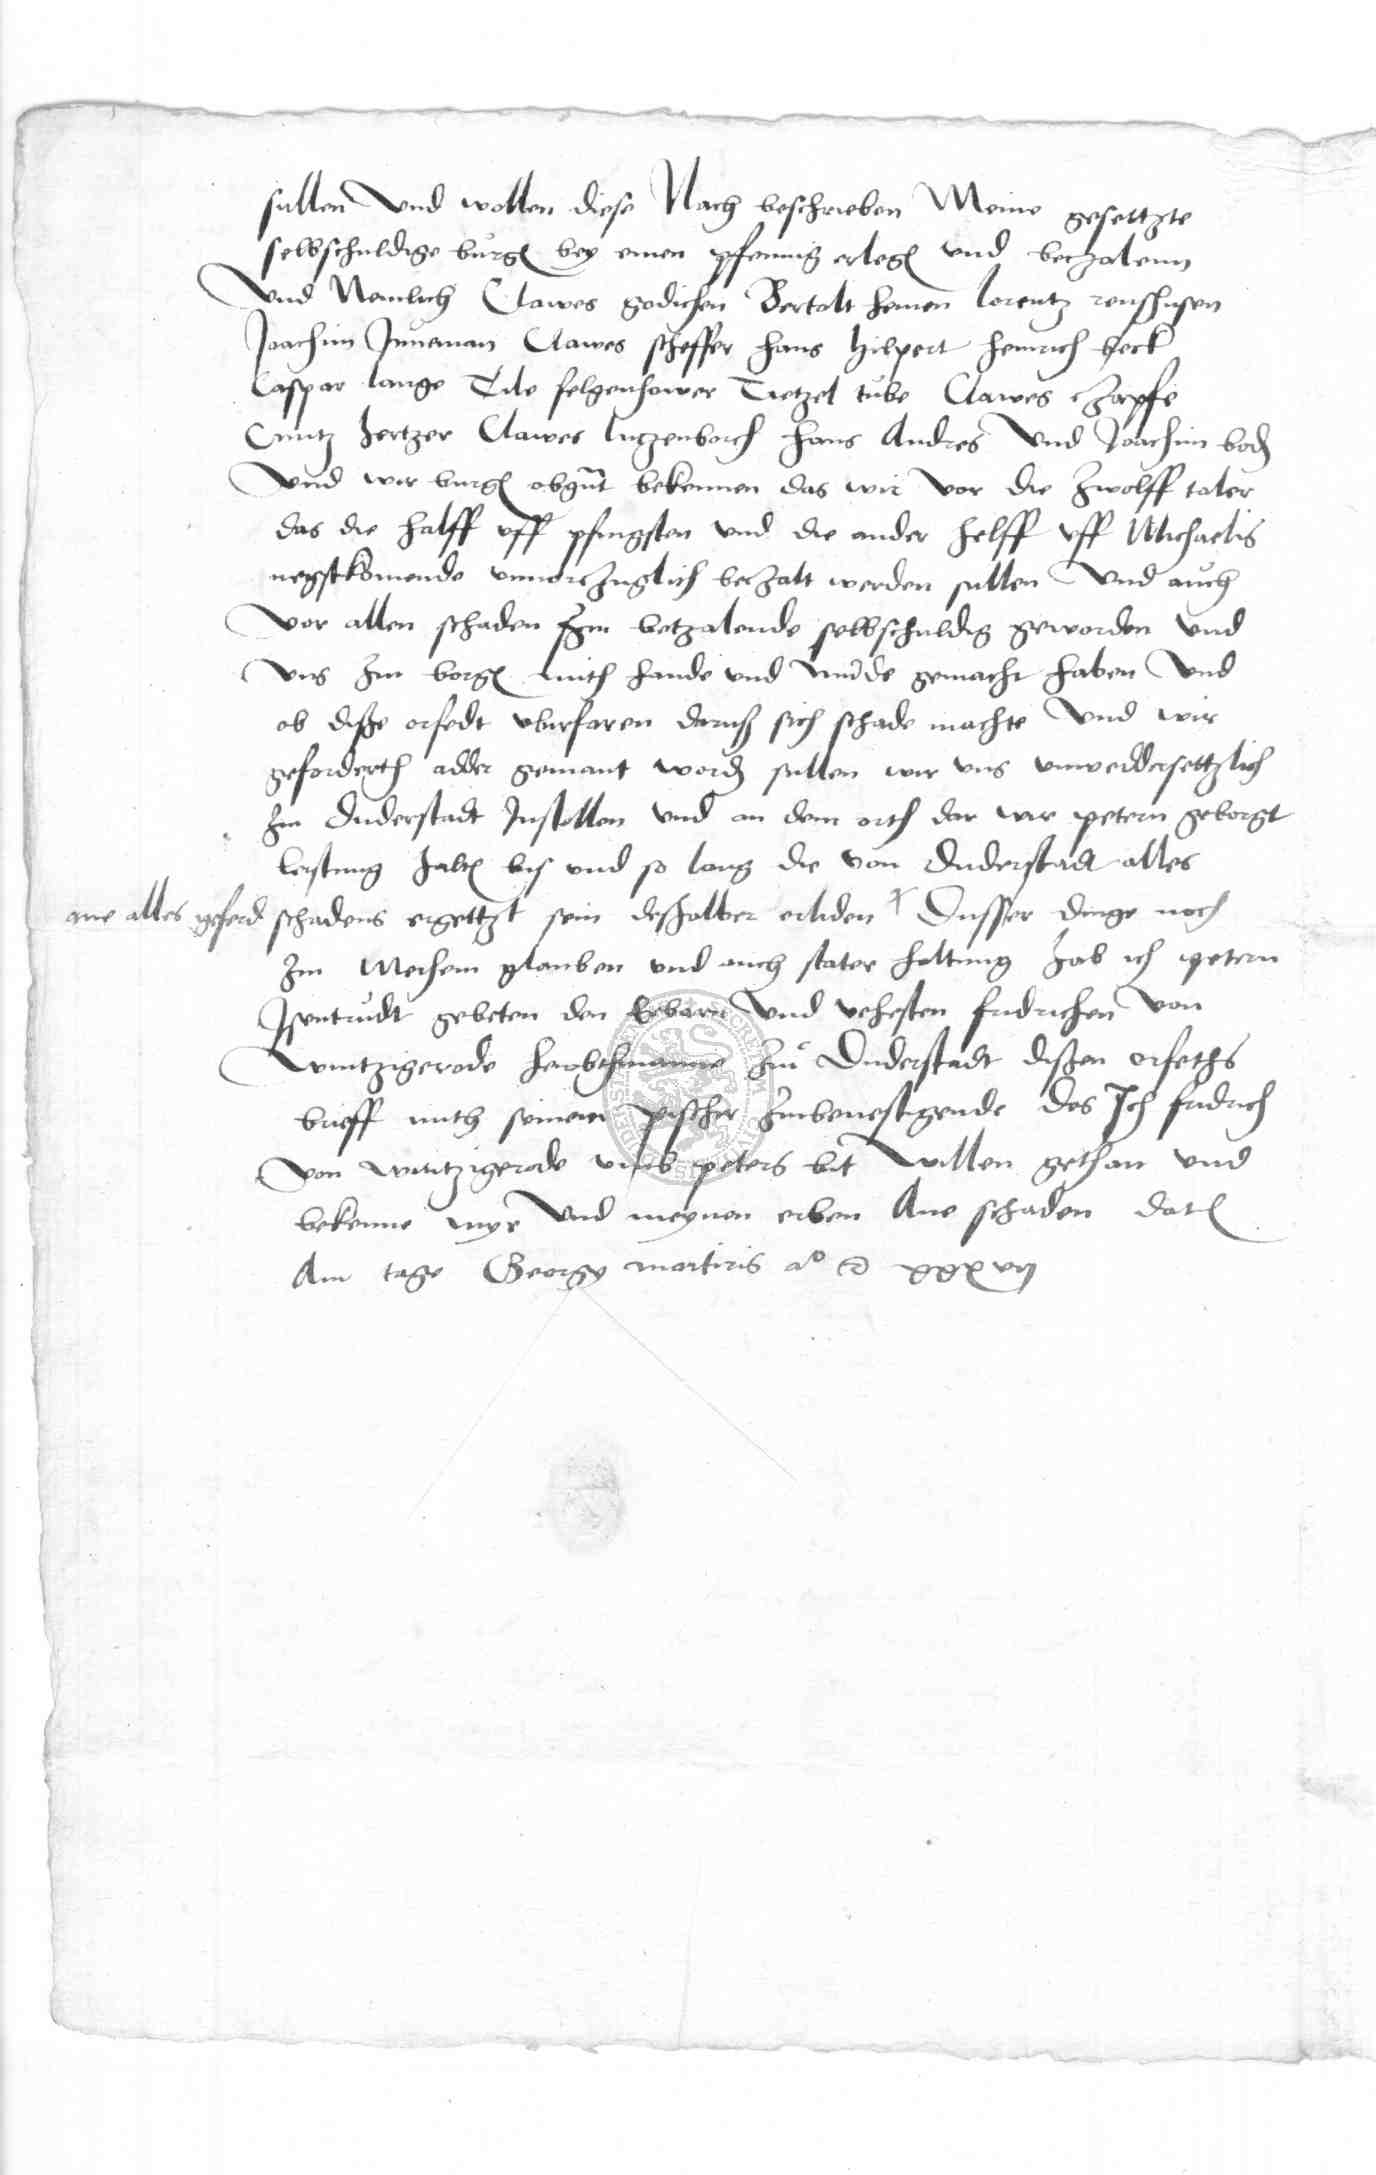 sullen Und wollen diese Nach beschrieben Meine gesettzte
selbschuldige burgen bey einen pfennig erlegen und betzalenn
Und Nemlich Clawes godichen Bertolt heinen lorentz renshusen
Joachim Juneman Clawes scheffer hans hilpert heinrich heck
Caspar lange Tile felgenhower Tietzel tube Clawes Zapfe
Cuntz hertzer Clawes hans Andres Und Joachim boden
Und wir burgen obgnt bekennen das wir Vor die Zwolff taler
das die halff uff pfingsten und die ander helff uff Michaelis
negstkomende unvorzuglich bezalt werden sullen Und auch
Vor allen schaden Zu betzalende selbschuldig geworden Und
Uns Zu borgen mith hande und munde gemacht haben Und
ob disße orfedt uberfaren daruß sich schade machte Und wir
geforderth adder gemant worden sullen wir uns unweddersettzlich
Zu Duderstadt Instellen und an dem orth dar wir petern geborgt
leistung halten biß und so lang die von Duderstadt alles
ane alles geferd schadens ergettzt sein deßhalber erliden Dusser dinge noch
Zu Merhem glauben und auch stater haltung hab ich petern
Isentrudt gebeten den Erbarn Und vehesten fridrichen Von
Wintzigerode heubthmanne Zu Duderstadt dißen orfeths
brieff mith seinem pischer Zubevestigende Des Ich fridrich
Von wintzigerode umb peters bit Willen gethan und
bekenne myr Und meynen erben Ane schaden Datum
Am tage Georgy martiris ao xxxvii